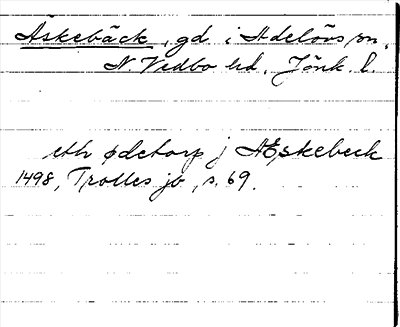 Äskebäck, gd i Adelövs sn,
N. Vedbo hd, Jönk. l.
eth ødetorp j Æskebeck
1498, Trolles jb, s. 69.